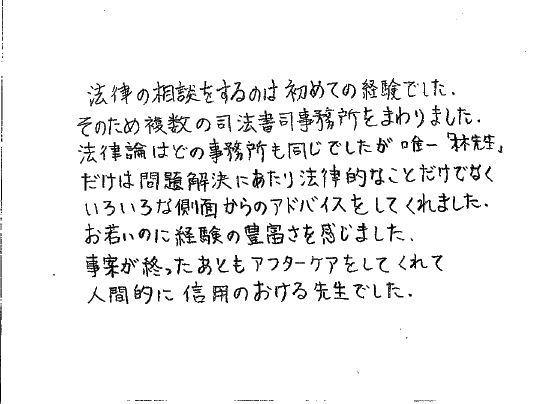 法律の相談をするのは初めての経験でした.
そのため複数の司法書司事務所をまわりました.
法律論はどの事務所も同じでしたが唯一「林先生」
だけは問題解決にあたり法律的なことだけでなく
いろいろな側面からのアドバイスをしてくれました.
お若いのに経験の豊富さを感じました.
事案が終ったあともアフターケアをしてくれて
人間的に信用のおける先生でした.